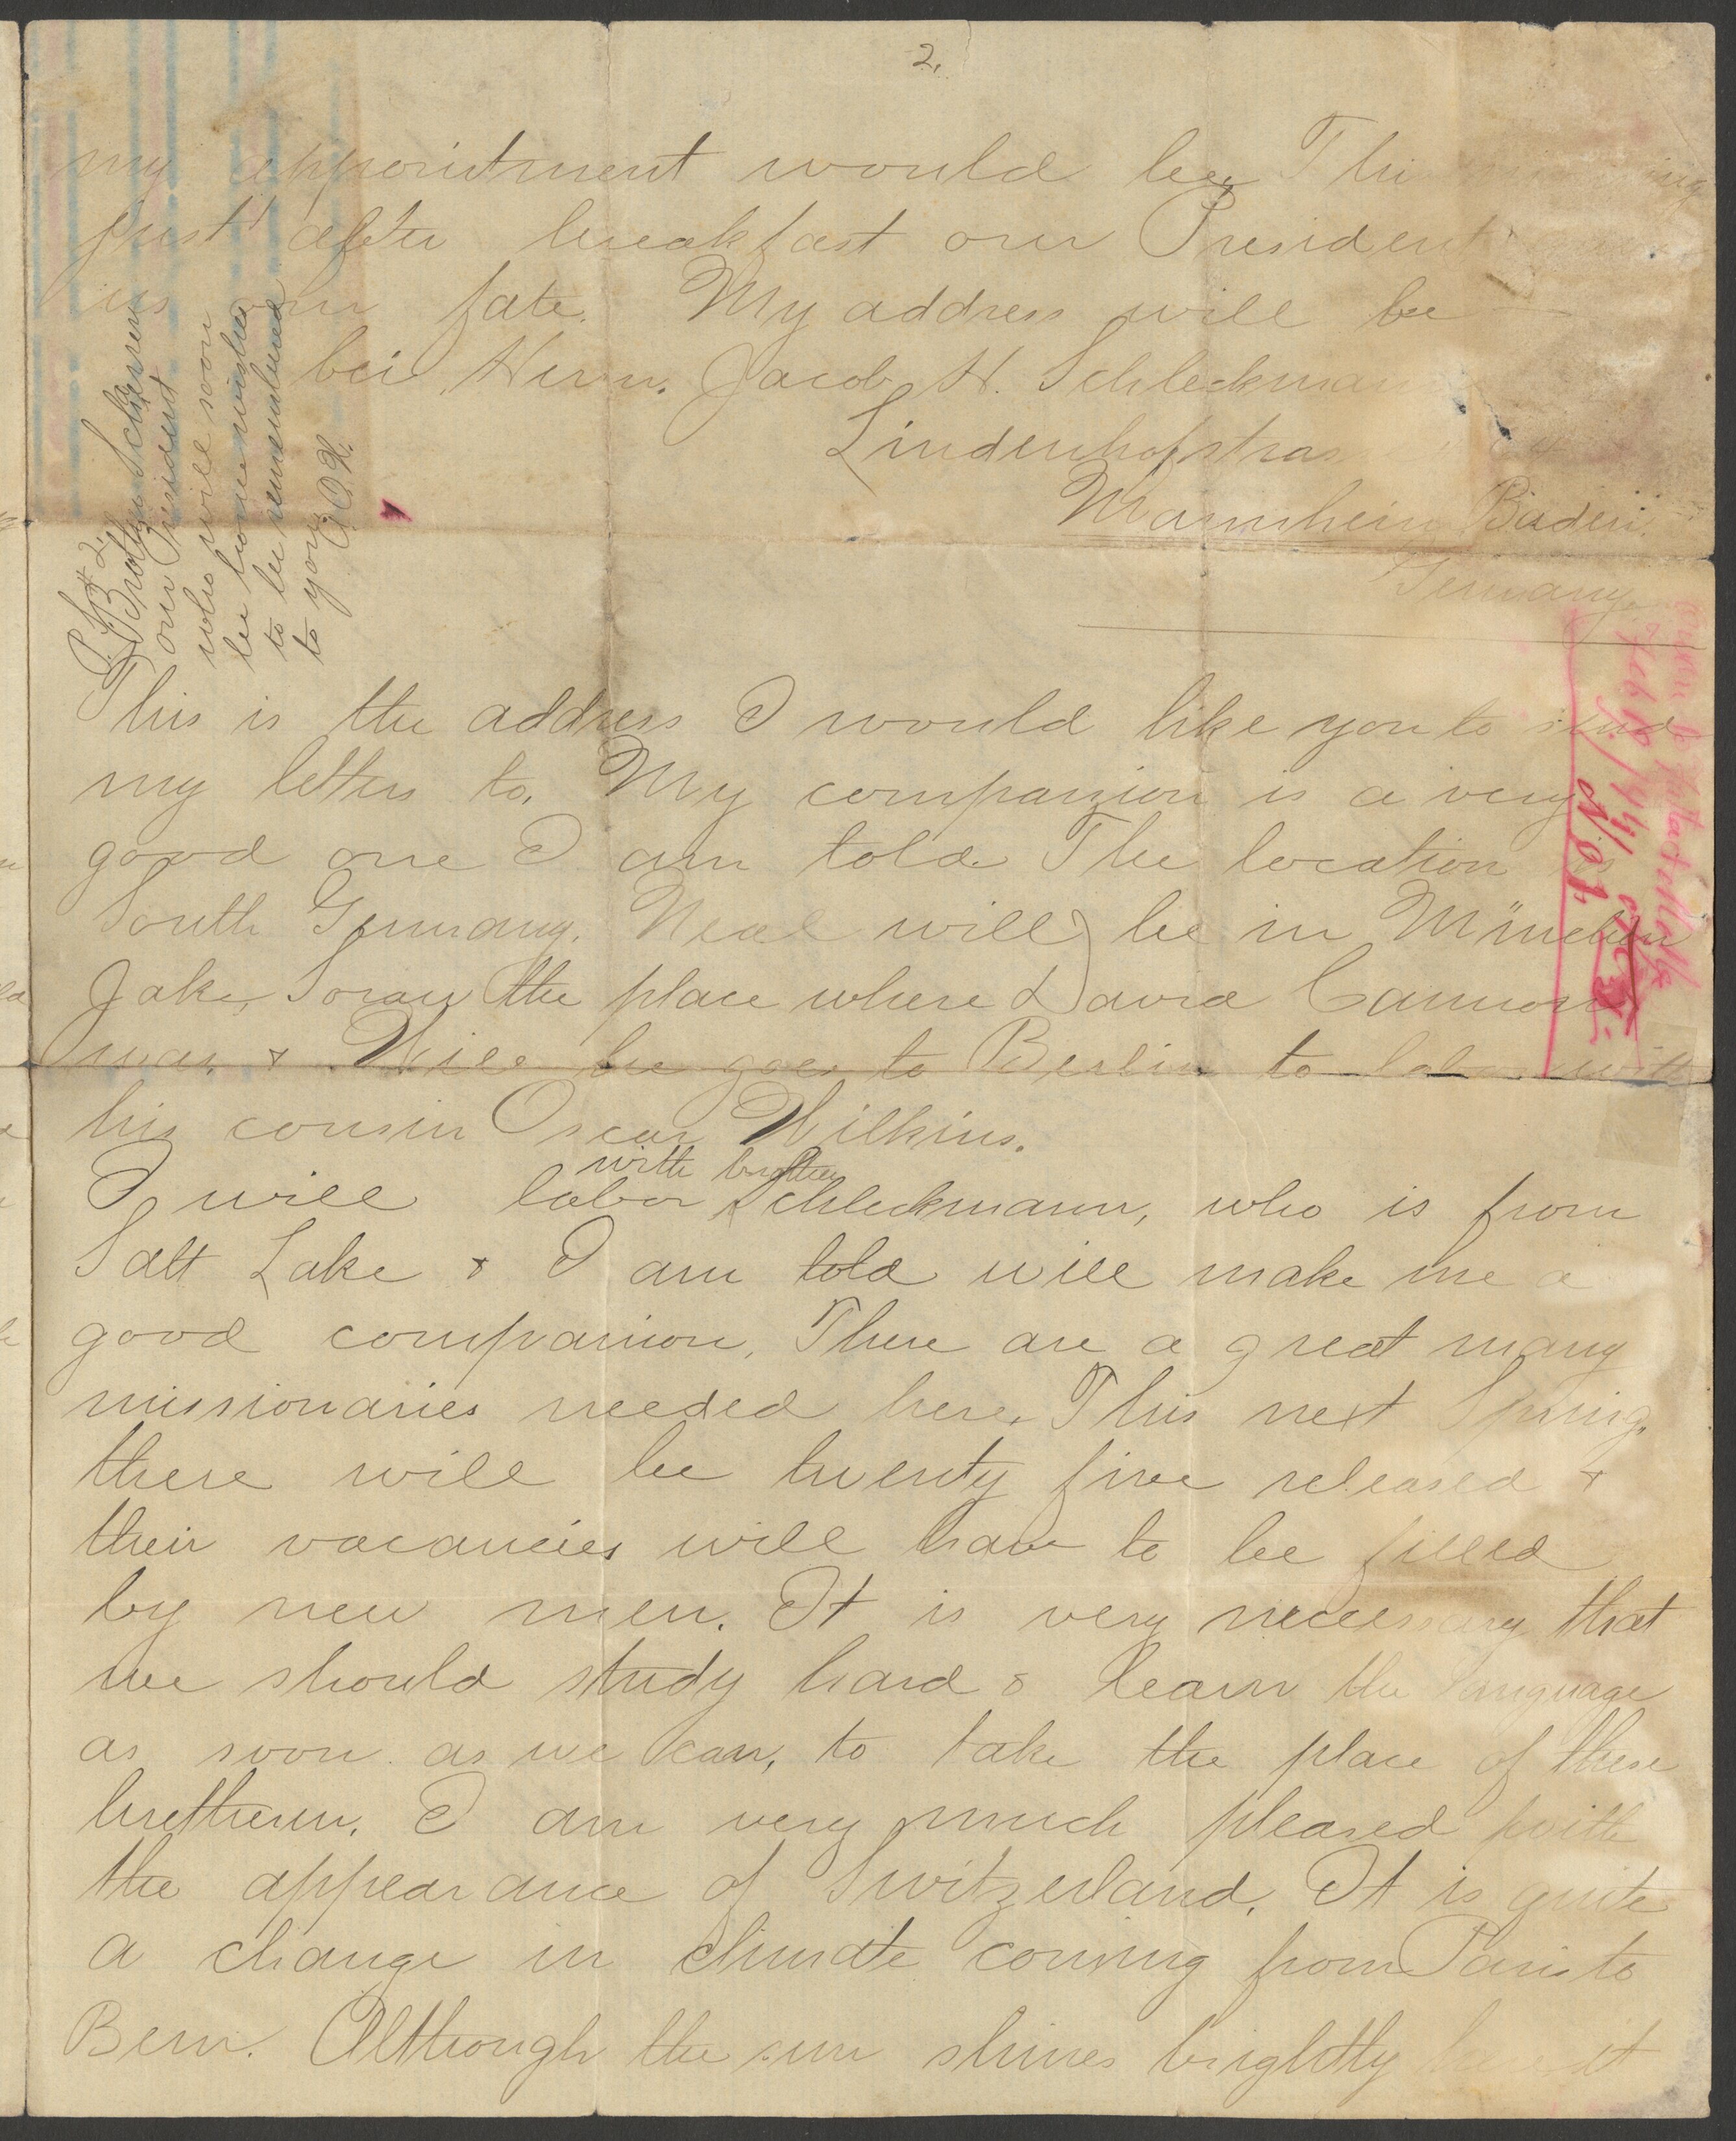 2.
my appointment would be. This morning
just after breakfast our President
us our fate. My address will be
bei Herrn. Jacob H. Schleckman
Lindenhofstras
Mannheim Baden.
Germany.
P.S. # 2.
Brother Scherrer
our President
who will soon
be home wishes
to be remembered
to you. O.K.
This is the address I would like you to send
my letters to. My companion is a very
good one I am told. The location is
South Germany. Neal will be in München
Jake, Sorau the place where David Cannon
was, & Will he goes to Berlin to labor with
his cousin Oscar Wilkins.
with brother
I will labor Schleckmann, who is from
Salt Lake & I am told will make me a
good companion. There are a great many
missionaries needed here. This next Spring.
there will be twenty five released &
their vacancies will have to be filled
by new men. It is very necessary that
we should study hard & learn the language
as soon as we can, to take the place of these
bretheren. I am very much pleased with
the appearance of Switzerland. It is quite
a change in climate coming from Paris to
Bern. Although the sun shines brightly here it